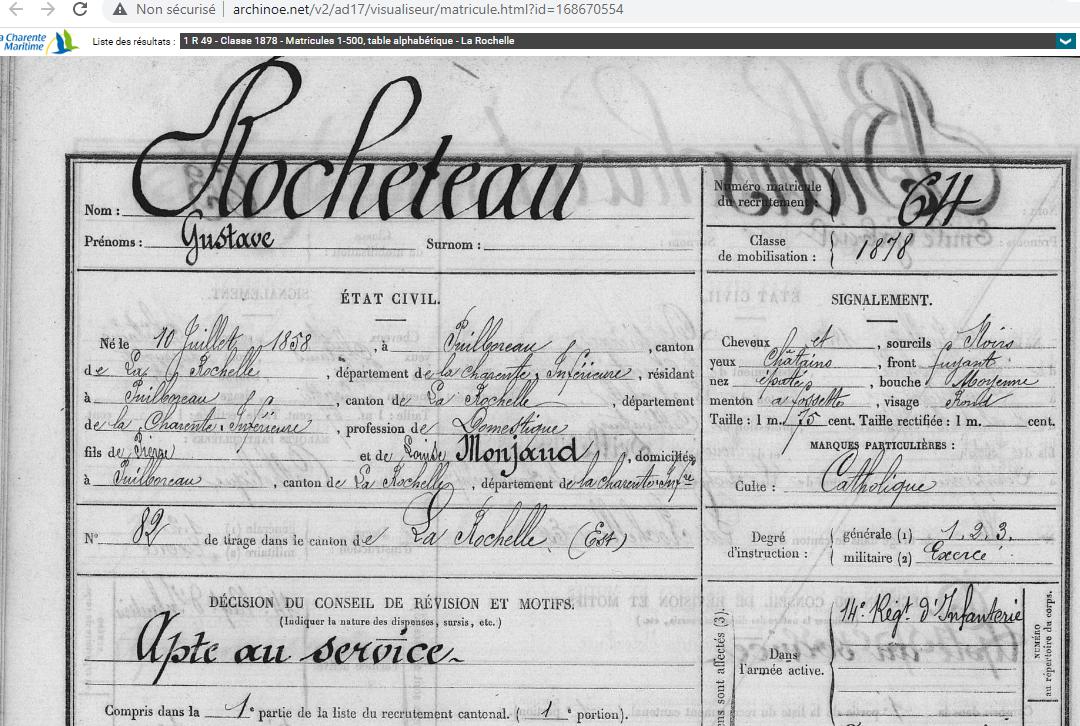 Non sécurisé | archinoe.net/v2/ad17/visualiseur/matricule.html?id=168670554
la Charente Maritime
Liste des résultats : 1 R 49 - Classe 1878 - Matricules 1-500, table alphabétique - La Rochelle
Nom : Rocheteau
Prénoms : Gustave Surnom :
Numéro matricule du recrutement : 64
Classe de mobilisation : 1878
ÉTAT CIVIL.
Né le 10 Juillet 1858, à Puilboreau, canton
de La Rochelle, département de la Charente Inférieure, résidant
à Puilboreau, canton de La Rochelle, département
de la Charente Inférieure, profession de Domestique
fils de Pierre et de Louise Monjaud, domiciliés
à Puilboreau, canton de La Rochelle, département de la Charente Infre
N° 82 de tirage dans le canton de La Rochelle (Est)
SIGNALEMENT.
Cheveux et, sourcils Noirs
yeux Châtains, front fuyant
nez épaté, bouche Moyenne
menton à fossette, visage Rond
Taille : 1 m. 75 cent. Taille rectifiée : 1 m. cent.
MARQUES PARTICULIÈRES :
Culte : Catholique
Degré d'instruction : générale (1) 1.2.3.
militaire (2) Exercé
DÉCISION DU CONSEIL DE RÉVISION ET MOTIFS.
(Indiquer la nature des dispenses, sursis, etc.)
Apte au service
Compris dans la 1e partie de la liste du recrutement cantonal. (1e portion).
ns sont affectés (3).
Dans l'armée active.
14e Régt d'Infanterie
NUMÉRO
au répertoire du corps.